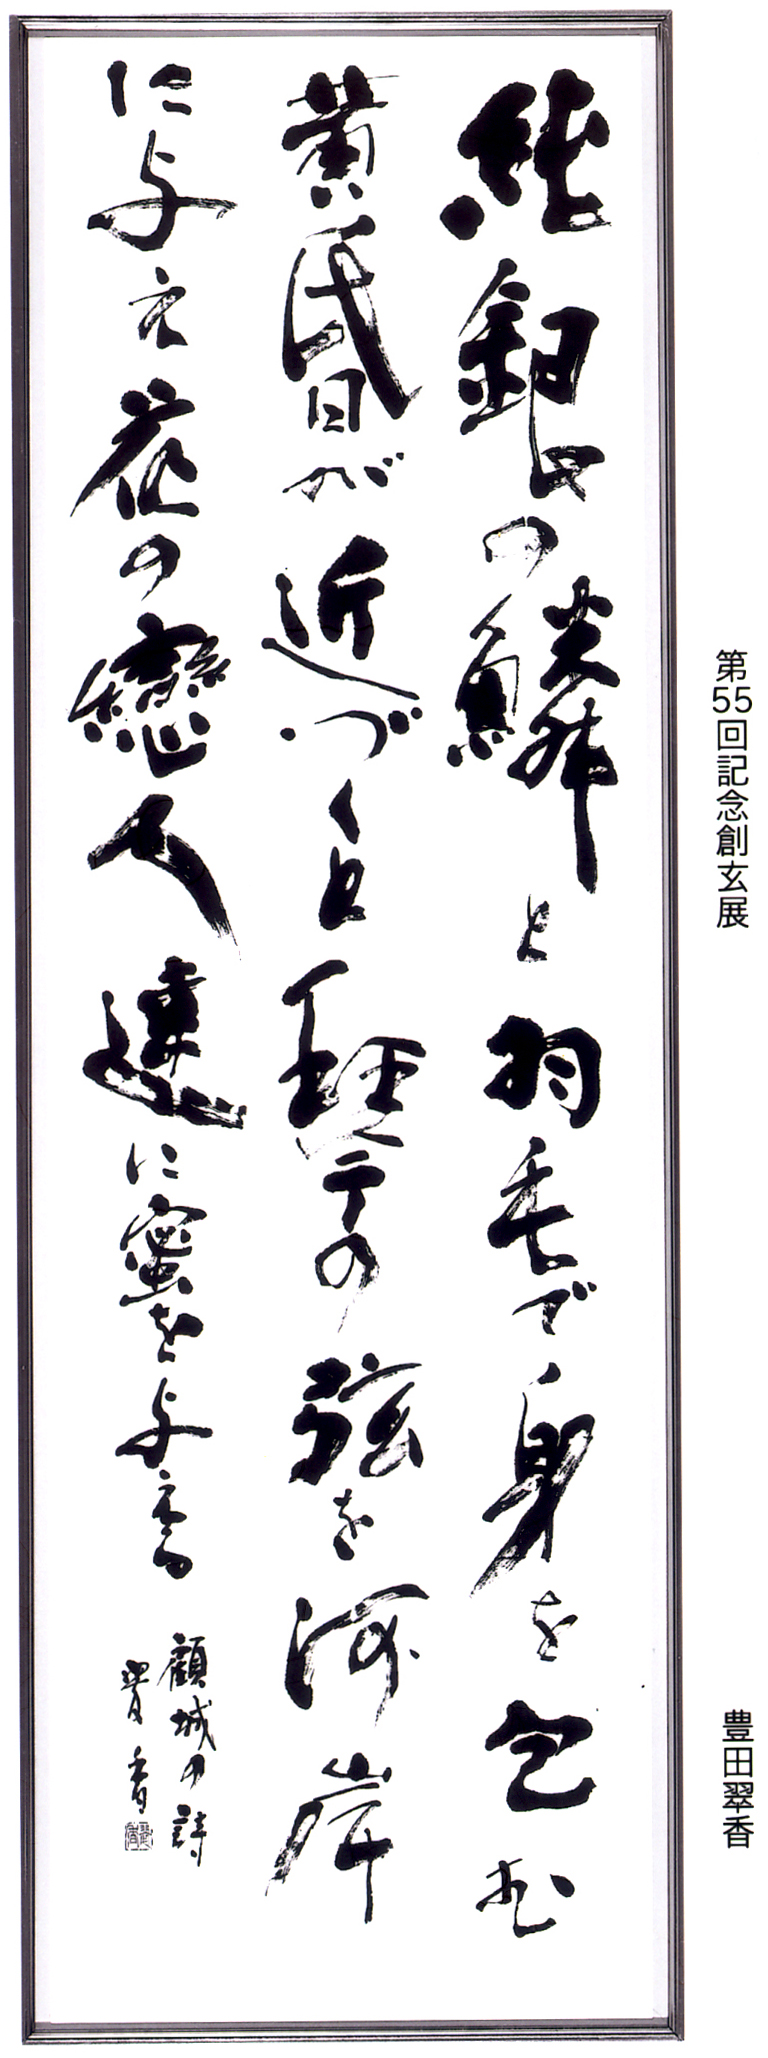 純銀の鱗と羽毛で身を包み
黄昏が近づくと琴の弦を河岸
に与え花の戀人達に蜜を与える
顧城の詩
翠香
第55回記念創玄展
豊田翠香